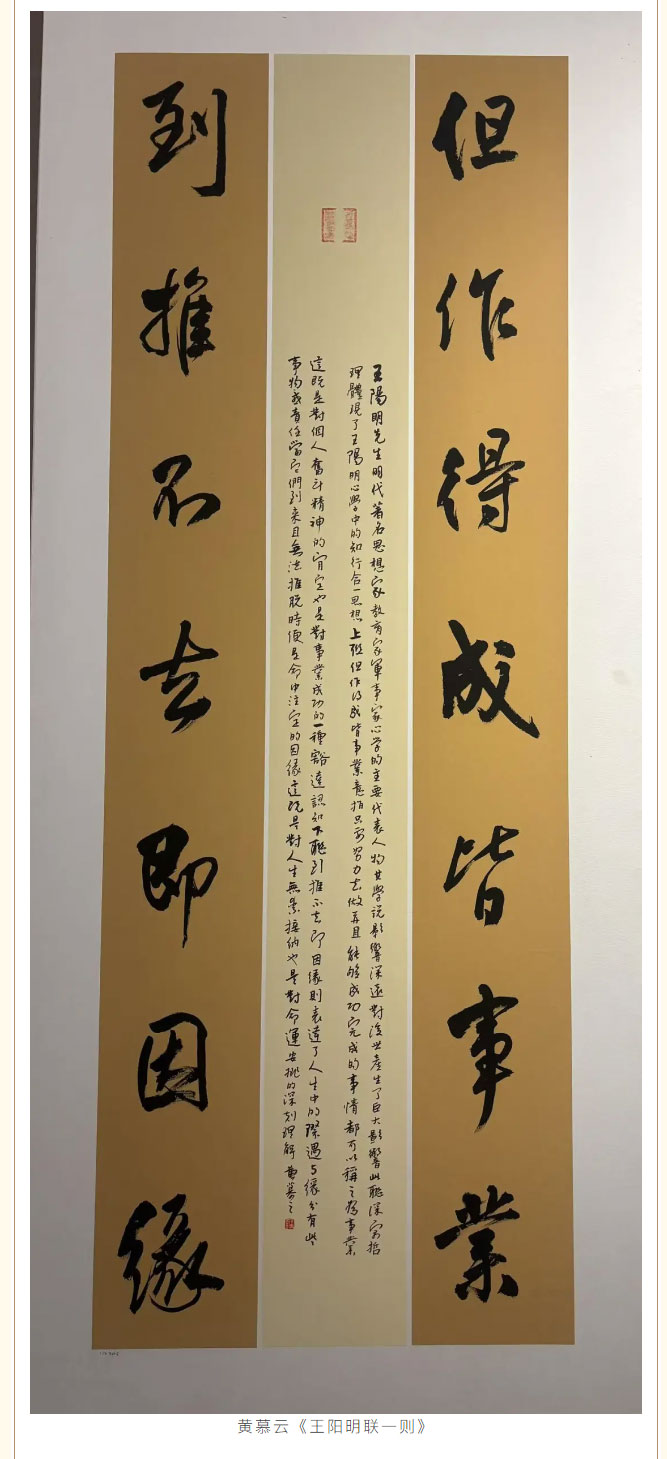 但作得成皆事業
王陽明先生明代著名思想家教育家軍事家心学的主要代表人物其學説影響深遠對後世產生了巨大影響此聯深富哲
理體現了王陽明心學中的知行合一思想上聯但作得成皆事業意指只要努力去做并且能够成功完成的事情都可以稱之為事業
這既是對個人奮斗精神的肯定也是對事業成功的一種豁達認知下聯到推不去即因缘則表達了人生中的際遇与缘分有些
事物或責任當它們到来且無法推脱時便是命中注定的因缘這既是對人生無常接纳也是對命運安排的深刻理解
到推不去即因緣
黄慕云《王阳明联一则》